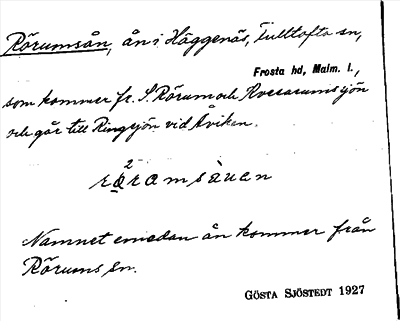 Rörumsån, ån i Häggenäs, Fulltofta sn,
Frosta hd, Malm. l.,
som kommer fr. S. Rörum och Kvesarumssjön
och går till Ringsjön vid Åviken.
2
røramsàuen
Namnet emedan ån kommer från
Rörums sn.
GÖSTA SJÖSTEDT 1927